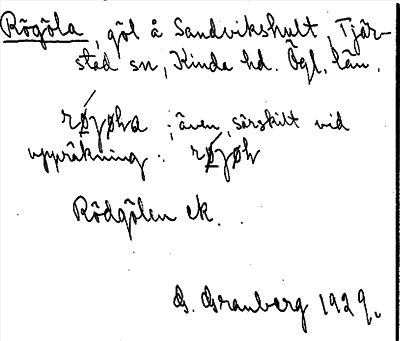 Rögöla, göl å Sandvikshult, Tjär-
stad sn, Kinda hd. Ögl. län.
; även, särskilt vid
uppräkning:
Rödgölen ek.
G. Granberg 1929.